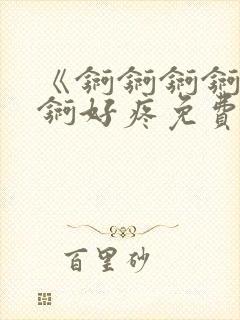 《锕锕锕锕
锕好疼免費
百里砂